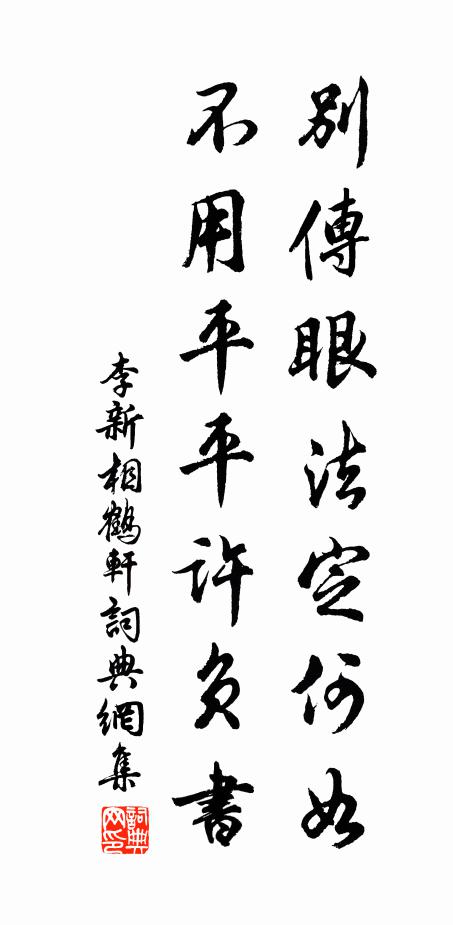 別傳眼法定何如
不用平平許負書
李新相鶴軒詞典網集
詞典網印